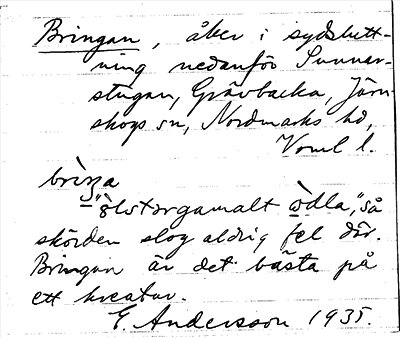 Bringan, åker i sydslutt-
ning nedanför Sunnar-
stugan, Gråvbacka, Järn-
skogs sn, Nordmarks hd,
Vrml l.
brìŋa
"òlstərgamalt òdla", så
skörden slog aldrig fel där.
Bringan är det bästa på
ett kreatur.
E. Andersson 1935.